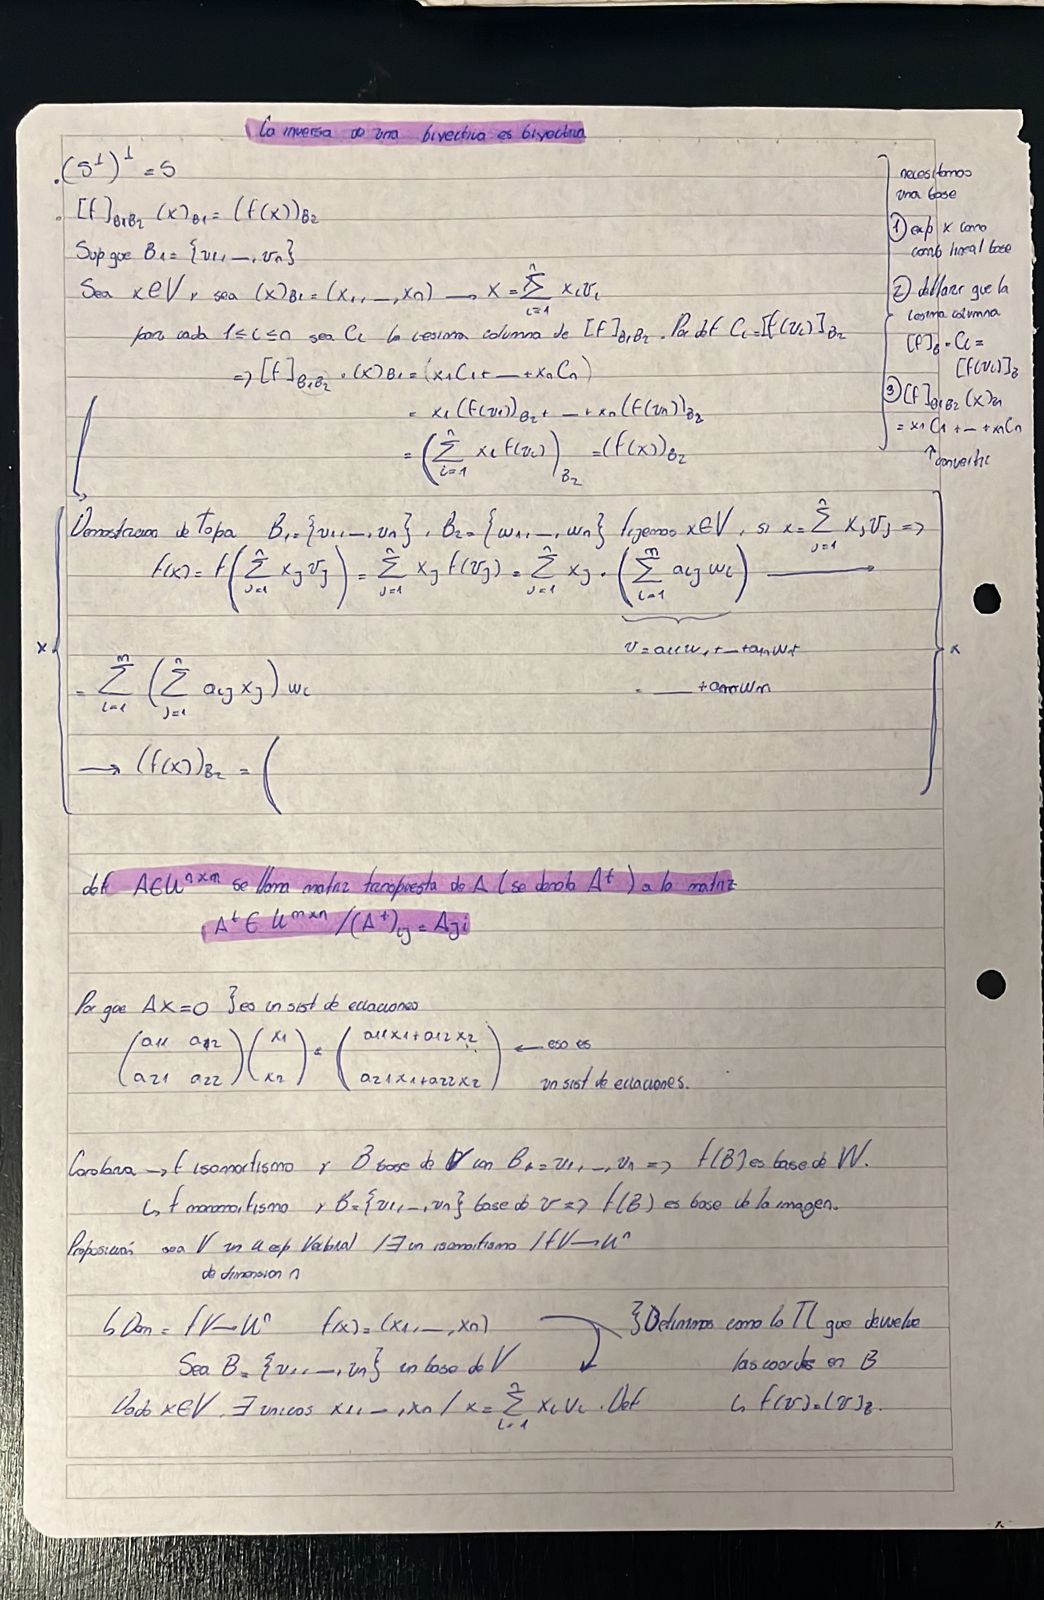 La inversa de una biyectiva es biyectiva
.(S⊥)⊥ = S
. [f]B1B2 (x)B1 = (f(x))B2
Sup que B1 = {v1, _, vn}
Sea x∈V y sea (x)B1 = (x1, _, xn) → x = Σ(i=1 a n) xi vi
para cada 1≤i≤n sea Ci la iesima columna de [f]B1B2. Por def Ci = [f(vi)]B2
=> [f]B1B2 . (x)B1 = (x1C1 + _ + xnCn)
= x1(f(v1))B2 + _ + xn(f(vn))B2
= (Σ(i=1 a n) xi f(vi))B2 = (f(x))B2
necesitamos
una base
① exp x como
comb lineal base
② definir que la
iesima columna
[f]B . Ci =
[f(vi)]B
③ [f]B1B2 (x)B1
= x1 C1 + _ + xn Cn
↑ convertir
Demostracion de Topa B1 = {v1, _, vn}, B2 = {w1, _, wn} tigemos x∈V, si x = Σ(j=1 a n) xj vj =>
f(x) = f(Σ(j=1 a n) xj vj) = Σ(j=1 a n) xj f(vj) = Σ(j=1 a n) xj . (Σ(i=1 a m) aij wi) →
v = a11w1 + _ + a1nw1
= __ + amnwm
= Σ(i=1 a m) (Σ(j=1 a n) aij xj) wi
→ (f(x))B2 = (
def A∈K^n×m se llama matriz transpuesta de A (se denota A^t) a la matriz
A^t ∈ K^m×n / (A^t)ij = Aji
Por que AX=0 } es un sist de ecuaciones
(a11 a12) (x1) = (a11x1+a12x2) ← eso es
(a21 a22) (x2) (a21x1+a22x2) un sist de ecuaciones.
Corolario → f isomorfismo y B base de V con B1 = v1, _, vn => f(B) es base de W.
↳ f monomorfismo y B = {v1, _, vn} base de v => f(B) es base de la imagen.
Proposicion sea V un K esp Vectorial / ∃ un isomorfismo / f V→K^n
de dimension n
↳ Dem = f V→K^n f(x) = (x1, _, xn) } Definimos como la TL que devuelve
Sea B = {v1, _, vn} un base de V las coords en B
Dado x∈V, ∃ unicos x1, _, xn / x = Σ(i=1 a n) xi vi . Def ↳ f(v) = (v)B.